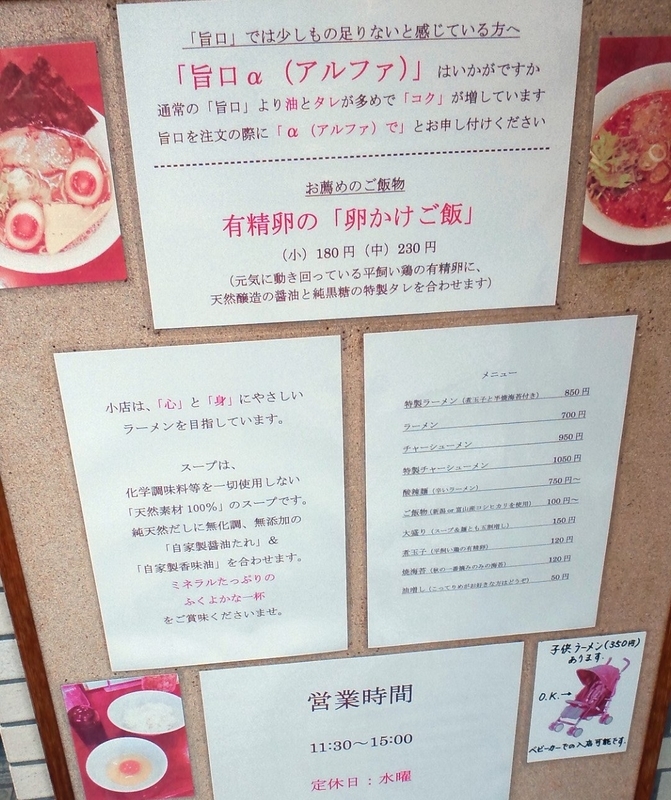 「旨口」では少しもの足りないと感じている方へ
「旨口α（アルファ）」はいかがですか
通常の「旨口」より油とタレが多めで「コク」が増しています
旨口を注文の際に「α（アルファ）で」とお申し付けください
お薦めのご飯物
有精卵の「卵かけご飯」
（小）180円（中）230円
（元気に動き回っている平飼い鶏の有精卵に、
天然醸造の醤油と純黒糖の特製タレを合わせます）
小店は、「心」と「身」にやさしい
ラーメンを目指しています。
スープは、
化学調味料等を一切使用しない
「天然素材100%」のスープです。
純天然だしに無化調、無添加の
「自家製醤油たれ」＆
「自家製香味油」を合わせます。
ミネラルたっぷりの
ふくよかな一杯
をご賞味くださいませ。
メニュー
特製ラーメン（煮玉子と半焼海苔付き） 850円
ラーメン 700円
チャーシューメン 950円
特製チャーシューメン 1050円
酸辣麺（辛いラーメン） 750円～
ご飯物（新潟or富山産コシヒカリを使用） 100円～
大盛り（スープ&麺とも五割増し） 150円
煮玉子（平飼い鶏の有精卵） 120円
焼海苔（秋の一番摘みのみの海苔） 120円
油増し（こってりめがお好きな方はどうぞ） 50円
子供ラーメン（350円）
あります。
O.K.→
ベビーカーでの入店可能です。
営業時間
11:30～15:00
定休日：水曜